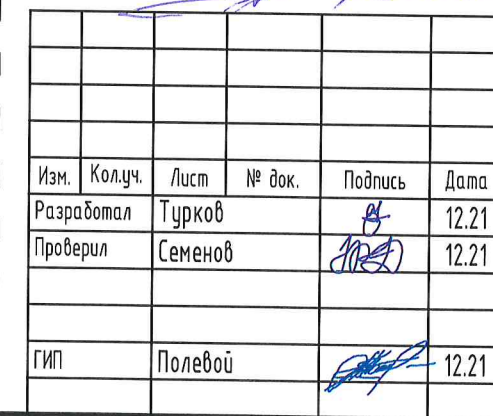 Изм. Кол.уч. Лист № док. Подпись Дата
Разработал Турков 12.21
Проверил Семенов 12.21
ГИП Полевой 12.21